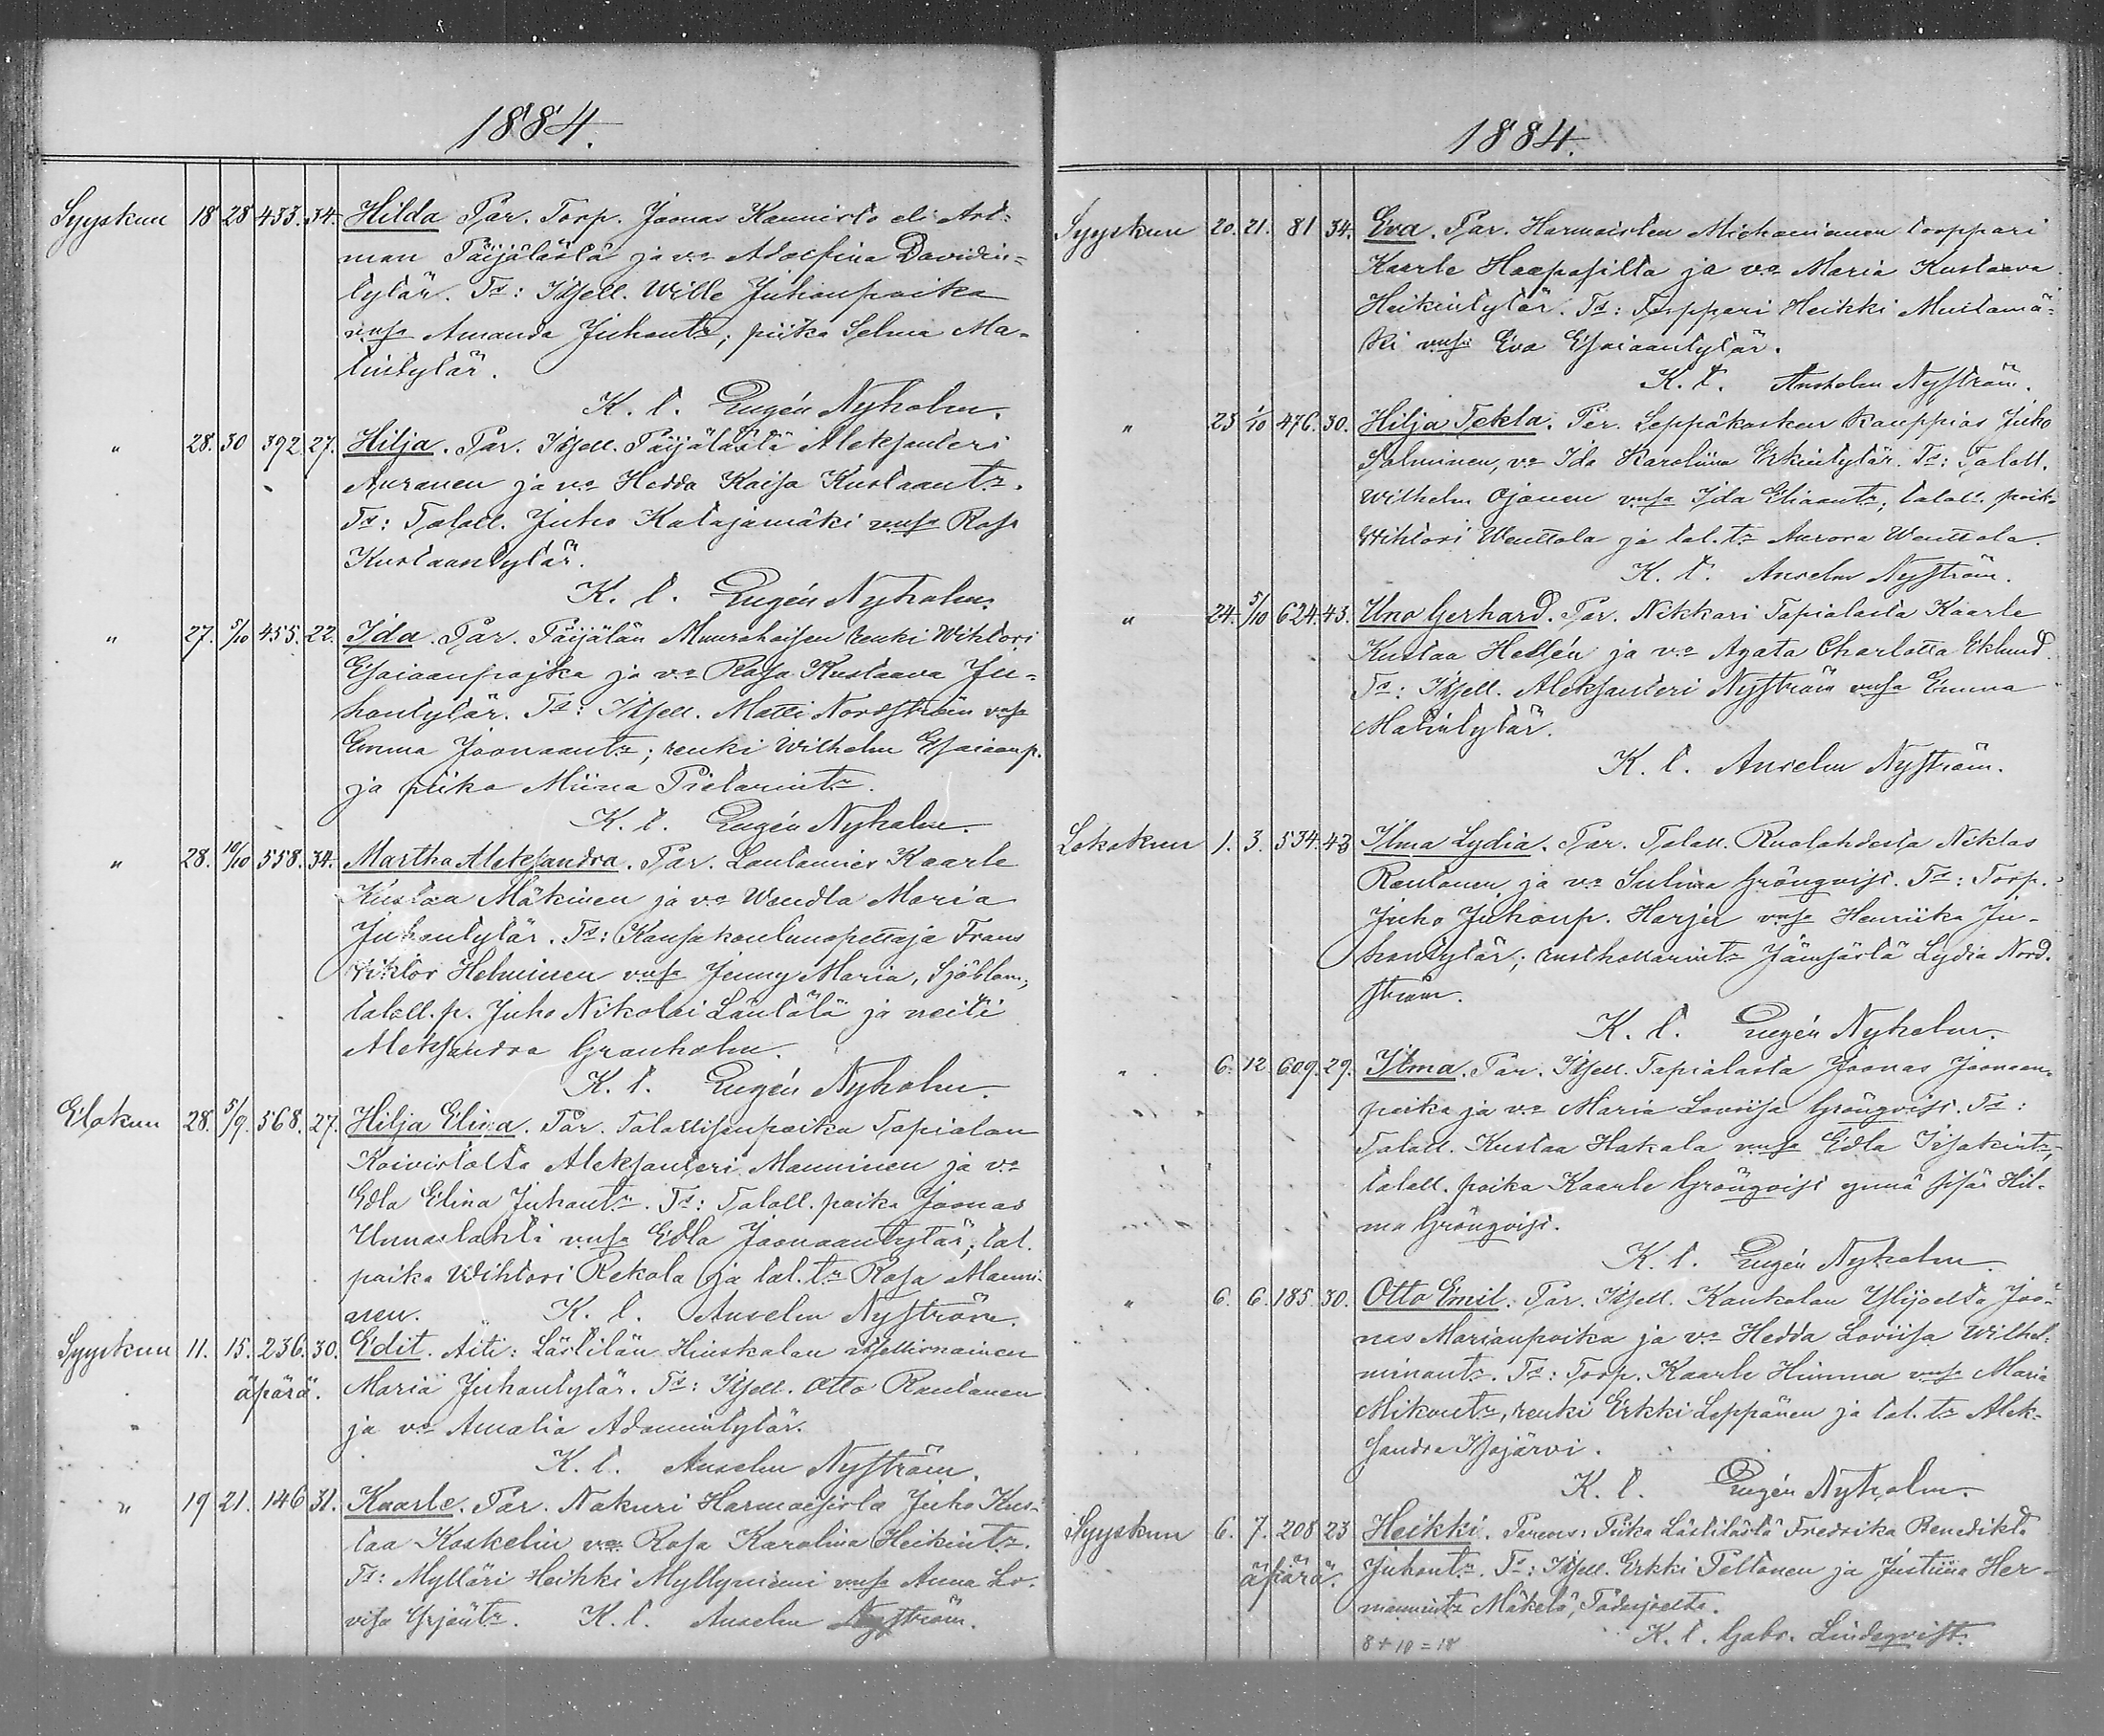 1884.
Syyskuu 18 28 433. 34. Hilda Par. Torp. Joonas Kannisto eli Art=
man Päijälästä ja vo Adolfina Davidin=
tytär. Ts: Itsell. Wille Juhonpoika
vmsa Amanda Juhontr; piika Selma Ma=
tintytär.
K. t. Eugén Nyholm.
" 28. 30 392. 27. Hilja. Par. Itsell. Päijälästä Aleksanteri
Auranen ja vo Hedda Kaisa Kustaantr.
Ts: Talall. Juho Katajamäki vmsa Rosa
Kustaantytär.
K. t. Eugén Nyholm.
" 27. 5/10 455. 22. Ida. Par. Päijälän renki Wihtori
Esaiaanpojka ja vo Rosa Kustaava Ju=
hontytär. Ts: Itsell. Matti Nordström vmsa
Emma Joonaantr; renki Wilhelm Esaiaanp.
ja piika Miina Pietarintr.
K. t. Eugén Nyholm.
" 28. 10/10 558. 34. Martha Aleksandra. Par. Lautamies Kaarle
Kustaa Mäkinen ja vo Wendla Maria
Juhontytär. Ts: Kansakoulunopettaja Frans
Viktor Helminen vmsa Jenny Maria, Sjöblom,
talall. p. Juho Nikolai Läntölä ja neiti
Aleksandra Granholm.
K. t. Eugén Nyholm.
Elokuu 28. 5/9. 568. 27. Hilja Elina. Par. Talollisenpoika Tapialan
Koivistolta Aleksanteri Manninen ja vo
Edla Elina Juhontr. Ts: Talall. poika Joonas
Unnaslahti vmsa Edla Joonaantytär; tal.
poika Wihtori Rekola ja tal. tr Rosa Manni-
nen. K. t. Anselm Nyström.
Syyskuu 11. 15. 236. 30. Edit. Äiti: Lästilän Hinskalan itsellisnainen
äpärä. Maria Juhontytär. Ts: Itsell. Otto Rautanen
ja vo Amalia Adamintytär.
K. t. Anselm Nyström.
" 19 21. 146 31. Kaarle. Par. Nahuri Harmoisista Juho Kus-
taa Koskelin vo Rosa Karolina Heikintr.
Ts: Mylläri Heikki Myllyniemi vmsa Anna Lo-
visa Yrjöntr. K. t. Anselm Nyström.
1884.
Syyskuu 20. 21. 81 34. Eva. Par. Harmoisten torppari
Kaarle Haapasilta ja vo Maria Kustaava
Heikintytär. Ts: Torppari Heikki Mustamä=
ki vmsa Eva Esaiaantytär.
K. t. Anshelm Nyström.
" 23 1/10 476. 30. Hilja Tekla. Par. Leppäkosken kauppias Juho
Salminen, vo Ida Karoliina Erkintytär. Ts: Talall.
Wilhelm Ojanen vmsa Ida Eliaantr; talall. poik.
Wihtori Wenttola ja tal. tr Aurora Wenttola.
K. t. Anselm Nyström.
" 24. 5/10 624. 43. Uno Gerhard. Par. Nikkari Tapialasta Kaarle
Kustaa Hellén ja vo Agata Charlotta Eklund.
Ts: Itsell. Aleksanteri Nyström vmsa Emma
Matintytär.
K. t. Anselm Nyström.
Lokakuu 1. 3. 534. 43 Ilma Lydia. Par. Talall. Ruolahdesta Niklas
Rautanen ja vo Sulima Gröngvist. Ts: Torp.
Juho Juhonp. Harju vmsa Henriika Ju-
hontytär; rusthollarintr Jämsästä Lydia Nord-
ström.
K. t. Eugén Nyholm.
" 6. 12. 609. 29. Ilma. Par. Itsell. Tapialasta Joonas Joonaan-
poika ja vo Maria Loviisa Gröngvist. Ts:
Talall. Kustaa Hakala vmsa Edla Isakintr,
talall. poika Kaarle Gröngvist ynnä sisar Hil-
ma Gröngvist.
K. t. Eugén Nyholm.
" 6. 6. 185. 30. Otto Emil. Par. Itsell. Kaukolan Joo-
nas Marianpoika ja vo Hedda Loviisa Wilhel-
minantr. Ts: Torp. Kaarle Himma vmsa Maria
Mikontr, renki Erkki Leppänen ja tal. tr Alek-
sandra Isojärvi.
K. t. Eugén Nyholm.
Syyskuu 6. 7. 208 23 Heikki. Piika Lästilästä Fredrika Benedikta
äpärä. Juhontr. Ts: Itsell. Erkki Peltonen ja Justiina Her-
manintr Mäkelä,
8 + 10 = 18 K. t. Gabr. Lindeqvist.